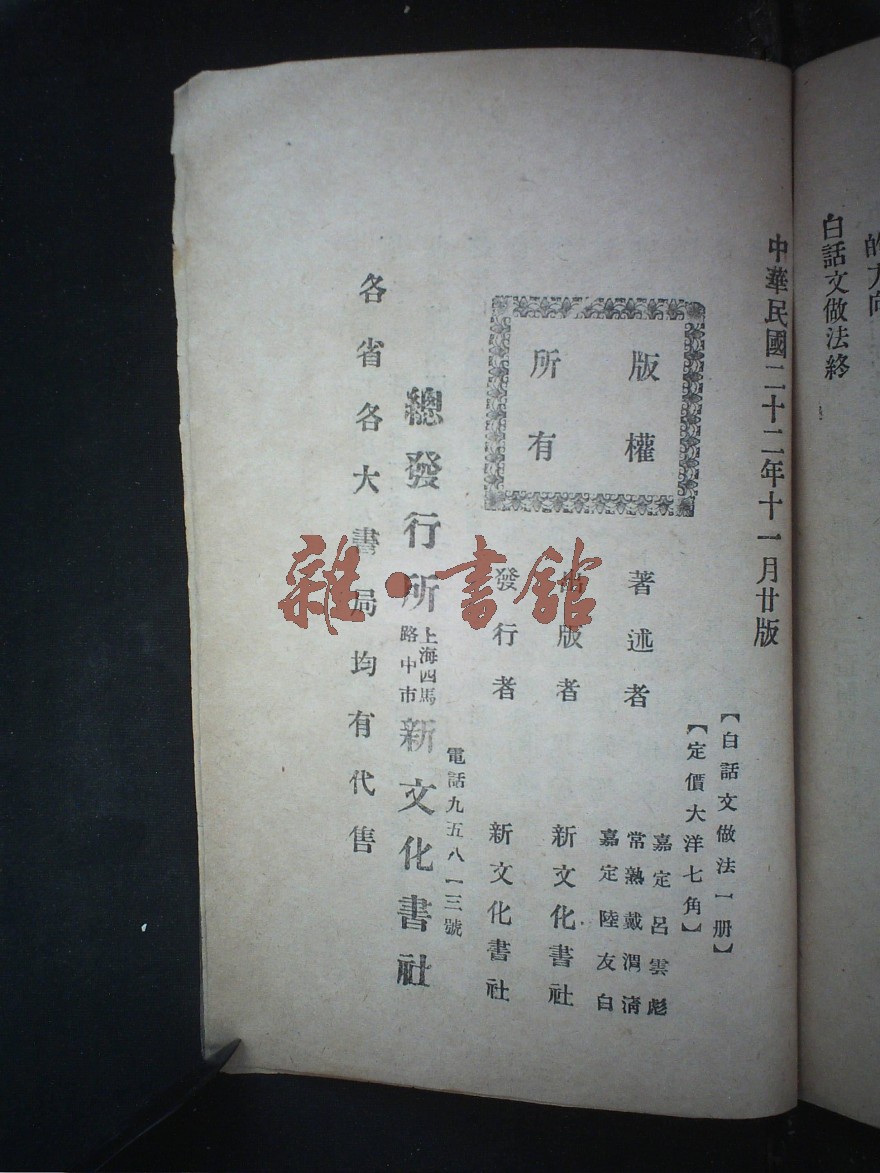 白話文做法終
中華民國二十二年十一月廿版
【白話文做法一册】
【定價大洋七角】
版權
所有
著述者
嘉定呂雲彪
常熟戴渭清
嘉定陸友白
出版者 新文化書社
發行者 新文化書社
電話九五八一三號
總發行所 上海四馬路中市 新文化書社
各省各大書局均有代售
雜·書館